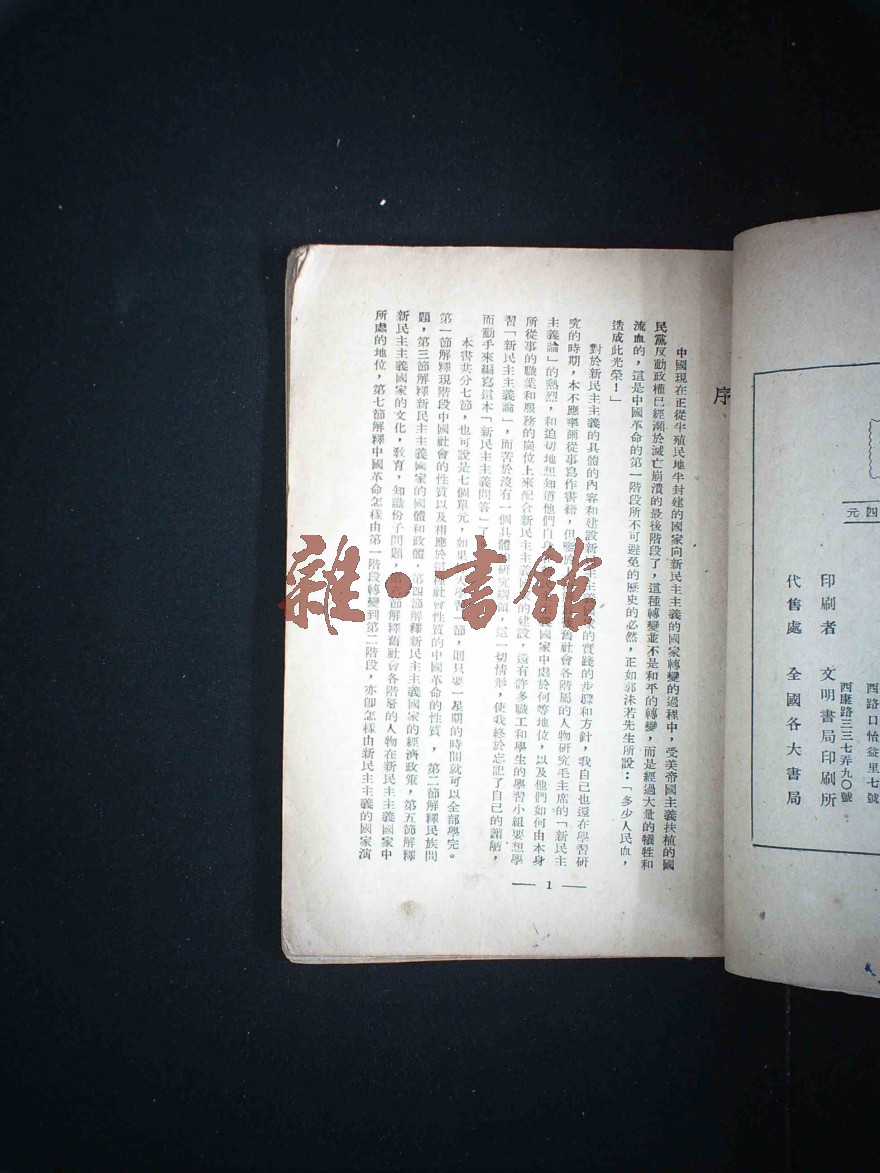 四元
西路口怡益里七號
西康路三三七弄九〇號
印刷者 文明書局印刷所
代售處 全國各大書局
序
中國現在正從半殖民地半封建的國家向新民主主義的國家轉變的過程中，受美帝國主義扶植的國
民黨反動政權已經瀕於滅亡崩潰的最後階段了，這種轉變並不是和平的轉變，而是經過大量的犧牲和
流血的，這是中國革命的第一階段所不可避免的歷史的必然，正如郭沫若先生所說：「多少人民血，
造成此光榮！」
對於新民主主義的具體的內容和建設新民主主義的實踐的步驟和方針，我自己也還在學習研
究的時期，本不應率爾從事寫作書籍，但舊社會各階層的人物研究毛主席的「新民主
主義論」的熱烈，和迫切地想知道他們自身國家中處於何等地位，以及他們如何由本身
所從事的職業和服務的崗位上來配合新民主主義的建設，還有許多職工和學生的學習小組要想學
習「新民主主義論」，而苦於沒有一個具體的研究綱領，這一切情形，使我終於忘記了自己的譾陋，
而動手來編寫這本「新民主主義問答」了
本書共分七節，也可說是七個單元，如果學習一節，則只要一星期的時間就可以全部學完。
第一節解釋現階段中國社會的性質以及相應於這種社會性質的中國革命的性質，第二節解釋民族問
題，第三節解釋新民主主義國家的國體和政體，第四節解釋新民主主義國家的經濟政策，第五節解釋
新民主主義國家的文化，教育，知識份子問題，第六節解釋舊社會各階層的人物在新民主主義國家中
所處的地位，第七節解釋中國革命怎樣由第一階段轉變到第二階段，亦卽怎樣由新民主主義的國家演
1
雜·書館